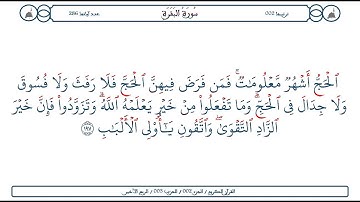 ترتيبها 002 سُورَةُ الْبَقَرَةِ عدد آياتها 286
ٱلْحَجُّ أَشْهُرٌ مَّعْلُومَـٰتٌ ۚ فَمَن فَرَضَ فِيهِنَّ ٱلْحَجَّ فَلَا رَفَثَ وَلَا فُسُوقَ
وَلَا جِدَالَ فِى ٱلْحَجِّ ۗ وَمَا تَفْعَلُوا۟ مِنْ خَيْرٍ يَعْلَمْهُ ٱللَّهُ ۗ وَتَزَوَّدُوا۟ فَإِنَّ خَيْرَ
ٱلزَّادِ ٱلتَّقْوَىٰ ۚ وَٱتَّقُونِ يَـٰٓأُو۟لِى ٱلْأَلْبَـٰبِ ١٩٧
القرآن الكريم / الجزء 002 / الحزب 003 /